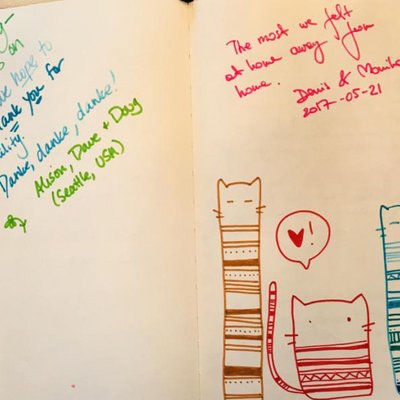 on
we hope to
thank you for
Danke, danke, danke!
Alison, Dave + Doug
(Seattle, USA)
The most we felt
at home away from
home.
Denis & Monika
2017-05-21
!